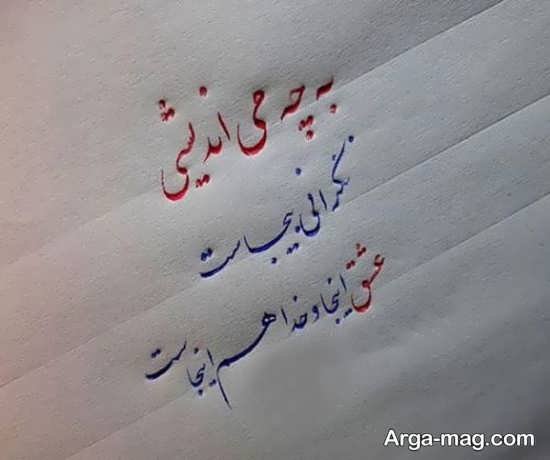 به چه می اندیشی
نگرانی بیجاست
عشق اینجا و خدا هم اینجاست
Arga-mag.com